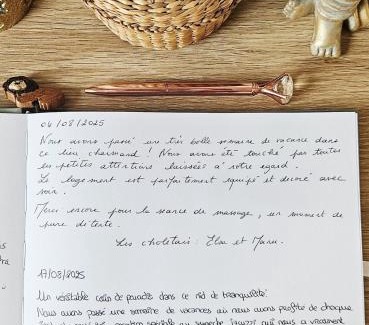 04/08/2025
Nous avons passé une très belle semaine de vacance dans
ce lieu charmand ! Nous avons été touché par toutes
les petites attentions laissées à notre égard.
Le logement est parfaitement équipé et decoré avec
soin.
Merci encore pour la seance de massage, un moment de
pure detente.
Les choletais : Elsa et Manu.
17/08/2025
Un véritable coin de paradis dans ce nid de tranquilité.
Nous avons passé une semaine de vacances où nous avons profité de chaque